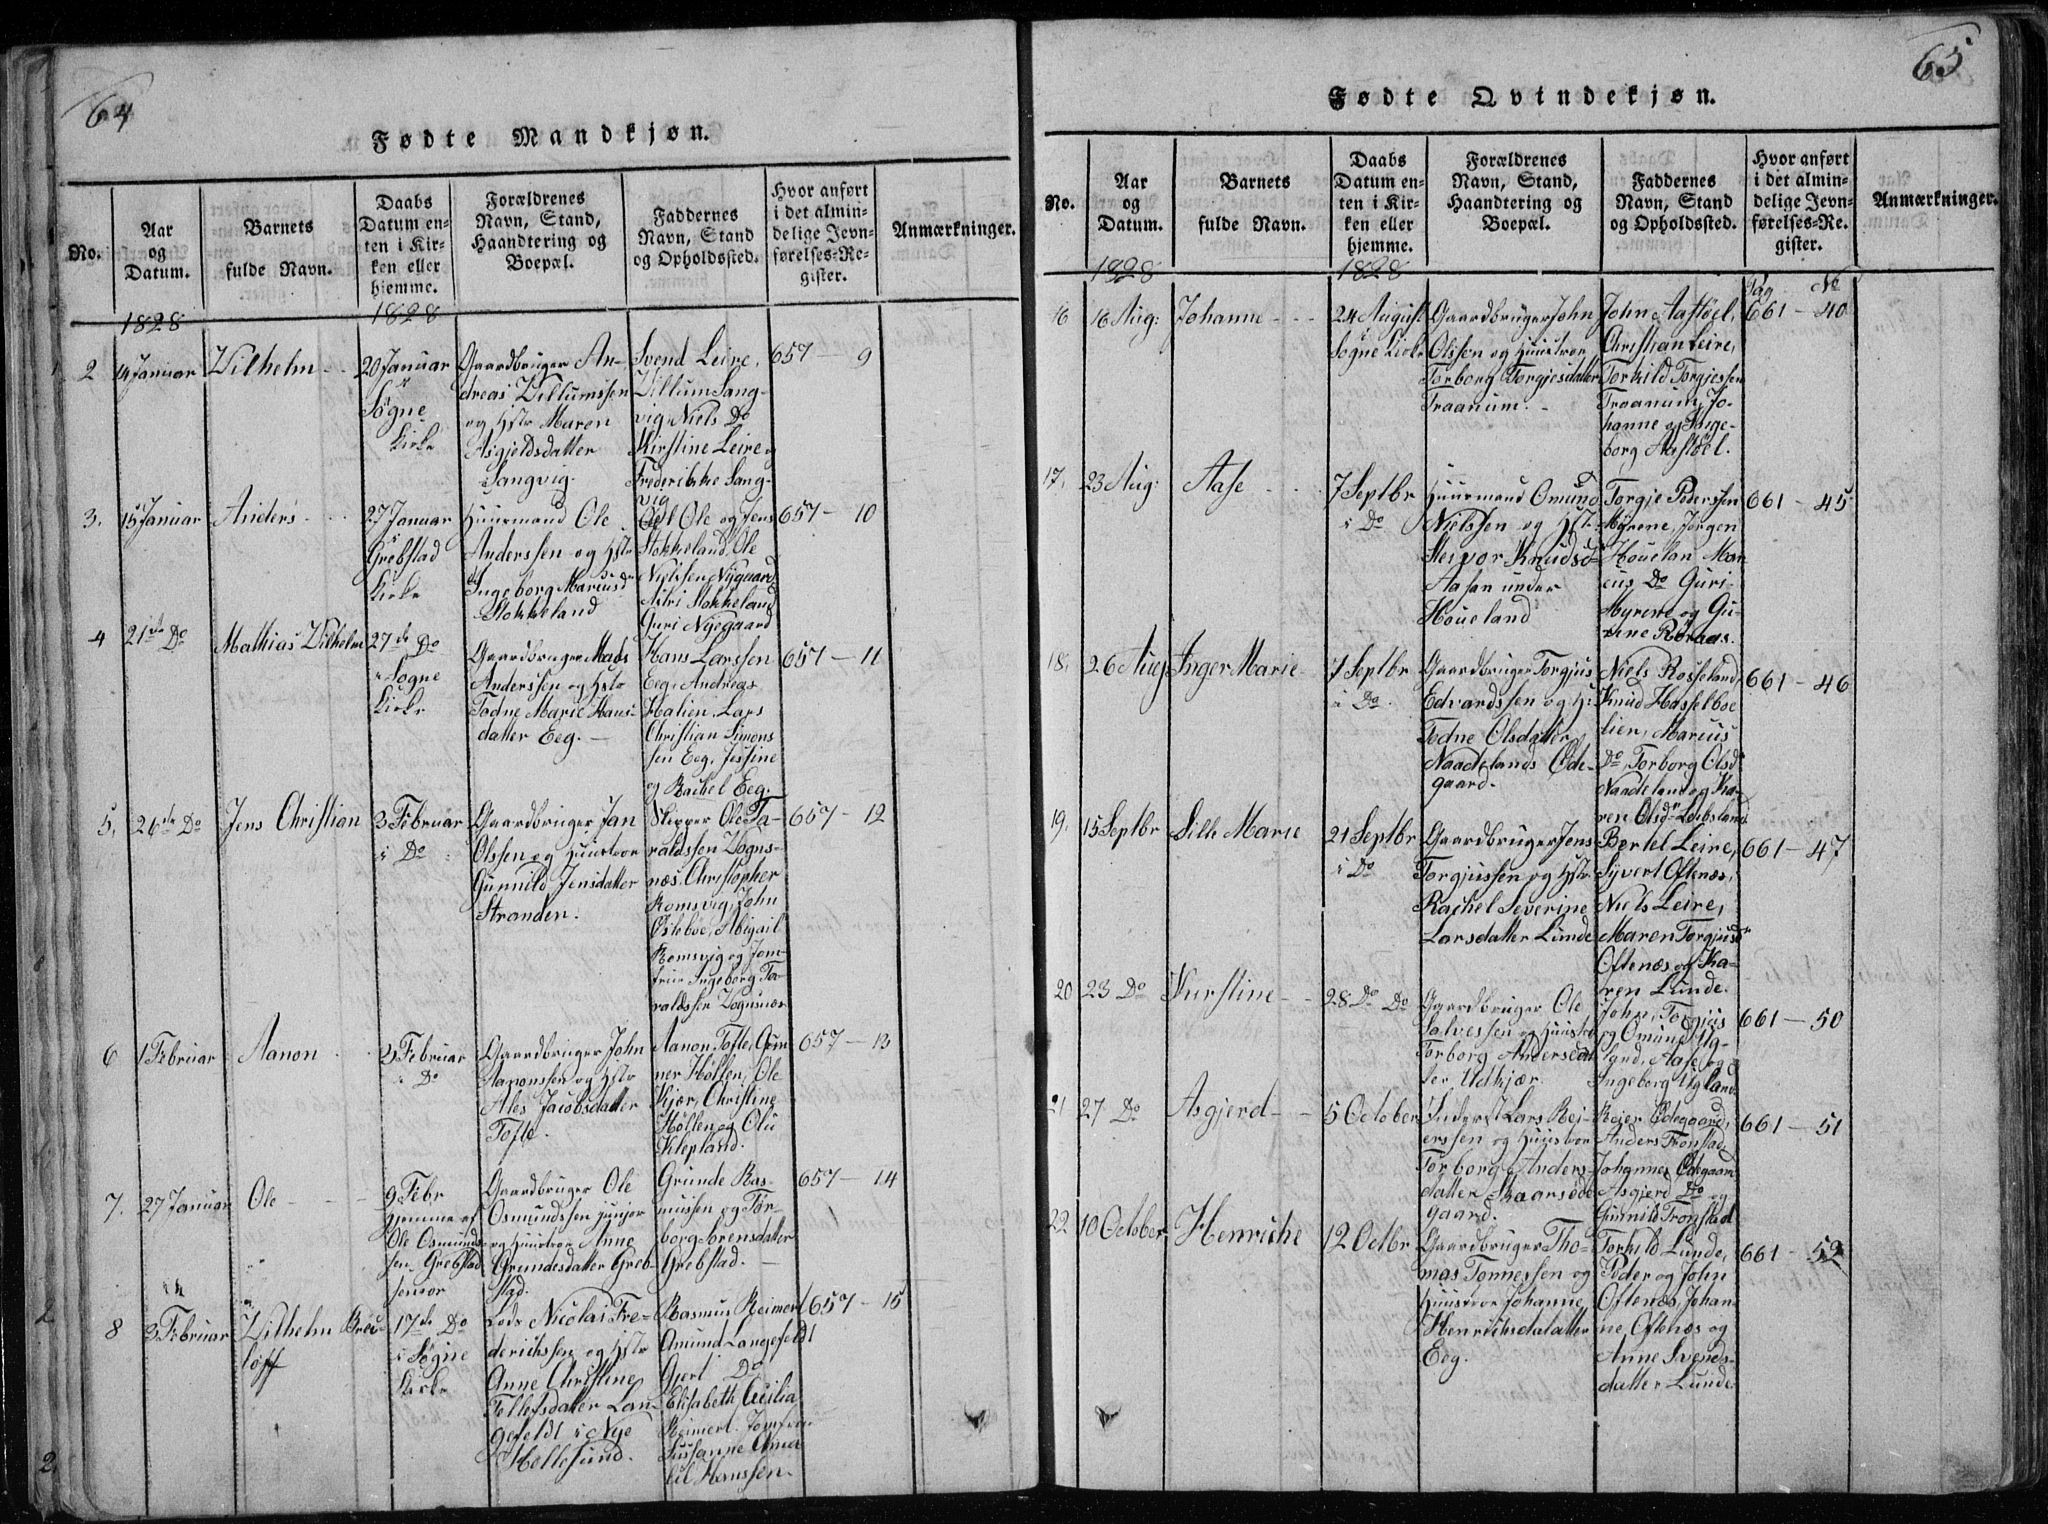 64
Fødte Mandkjøn.
No.
Aar
og
Datum.
Barnets
fulde Navn.
Daabs
Datum en-
ten i Kir-
ken eller
hjemme.
Forældrenes
Navn, Stand,
Haandtering og
Boepæl.
Faddernes
Navn, Stand
og Opholdssted.
Hvor anført
i det almin-
delige Jevn-
førelses-Re-
gister.
Anmærkninger.
1828
1828
2
14 Januar
Vilhelm
20 Januar
i
Søgne
Kirke
Gaardbruger An-
dreas Villumssen
og Hstr Maren
Asgjeldsdatter
Langvig.
Svend Leire,
Villum Lang-
vig, Niels Do
Kirstine Leire og
Frederikke Lang-
vig
657 — 9
3.
15 Januar
Anders
27 Januar
i
Grebstad
Kirke
Huusmand Ole
Anderssen og Hstr
Ingeborg Mariusd
Stokkeland
Ole og Jens
Stokkeland, Ole
Nielssen Nygaard
Stokkeland
Guri Nyegaard
657 — 10
4
21de Do
Mathias Vilhelm
27de Do
i Søgne
Kirke
Gaardbruger Mads
Anderssen og Hstr
Todne Marie Hans-
datter Eeg.
Hans Larssen
Eeg, Andreas
Halien, Lars
Christian Simons
sen Eeg, Jessine
og Rachel Eeg.
657 — 11
5.
26de Do
Jens Christian
3 Februar
i Do
Gaardbruger Jan
Olssen og Huustroe
Gunnild Jensdatter
Stranden.
Skipper Ole Ta-
raldssen Vogns-
næs, Christopher
Romsvig, John
Østeboe, Abigail
Romsvig og Jom-
frue Ingeborg Ta-
raldssen Vognsnæs
657 — 12
6
1 Februar
Aanon
3 Februar
i Do
Gaardbruger John
Aanonssen og Hstr
Ales Jacobsdatter
Tofte.
Aanon Tofte, Gun
ner Høllen, Ole
Kjær, Christine
Høllen og Olu
Klepland.
657 — 13
7.
27 Januar
Ole
9 Febr
hjemme af
Ole Osmunds-
sen Grebstad
senior
Gaardbruger Ole
Osmundssen junjor
og Huustroe Anne
Grundesdatter Greb-
stad.
Grunde Ras-
mussen og Tor-
borg Sørensdatter
Grebstad.
657 — 14
8
3 Februar
Vilhelm Brei-
løff
17de Do
i Søgne
Kirke
Lods Nicolai Fre-
derichssen og Hstr
Anne Christine
Tellefsdatter Lan-
gefeldt i Nye
Hellesund.
Rasmus Reimert
Amund Langefeldt
Gjert Do
Elisabeth Cecilia
Reimert. Jomfrue
Susanne Ama
lie Hanssen.
657 — 15
65
Fødte Qvindekjøn.
No.
Aar
og
Datum.
Barnets
fulde Navn.
Daabs
Datum en-
ten i Kir-
ken eller
hjemme.
Forældrenes
Navn, Stand,
Haandtering og
Boepæl.
Faddernes
Navn, Stand
og Opholdssted.
Hvor anført
i det almin-
delige Jevn-
førelses-Re-
gister.
Anmærkninger.
1828
1828
Pag No
16
16 Aug:
Johanne
24 August
Sogne Kirke
Gaardbruger John
Olssen og Huustroe
Torborg Torgjesdatter
Traanum.
John Aastøel,
Christian Leire,
Torkild Torgjessen
Traanum, Jo-
hanne og Inge-
borg Aastøel.
661 — 40
17.
23 Aug:
Aase
7 Septbr
i Do
Huusmand Omund
Nielssen og Hstr
Steivor Knudsd
Aasan under
Houeland
Torgje Pederssen
Myrene, Jørgen
Houelan Mar-
cus Do Guri
Myrene og Gu-
rine Røraas.
661 — 45
18.
26 Aug
Inger Marie
7 Septbr
i Do.
Gaardbruger Torgjus
Edvardssen og H:
Todne Olsdatter
Naadelands Øde-
gaard.
Niels Rosseland,
Knud Hasselboe
lien, Marcus
Do, Torborg Olsd
Naadeland og Ka-
ren Olsdr Leibsland
661 — 46
19.
15 Septbr
Sille Marie
21 Septbr
i Do
Gaardbruger Jens
Torgjussen og Hstr
Rachel Severine
Larsdatter Lunde
Bertel Leire,
Syvert Oftenæs,
Niels Leire,
Maren Torgjusdr
Oftenæs og Ka-
ren Lunde.
661 — 47
20
23 Do
Kirstine
28 Do Do
Gaardbruger Ole
Salvessen og Huustroe
Torborg Andersdat
ter Udkjær.
John, Torgjus
og Omund Ug-
land, Aase og
Ingeborg Ugland
661 — 50
21
27 Do
Asgjerd
5 October
Inderst Lars Rei-
erssen og Huustroe
Torborg Anders-
datter Skaarsøde-
gaard.
Reier Ødegaard,
Anders Tronstad,
Johannes Ødegaard
Asgjerd Do og
Gunnild Tronstad
661 — 51
22
10 October
Henriche
12 Octbr
Gaardbruger Tho-
mas Tønnessen og
Huustroe Johanne
Henrichsdatter
Eeg.
Torkild Lunde,
Peder og John
Oftenæs, Johan-
ne Oftenæs og
Anne Svends-
datter Lunde.
661 — 52